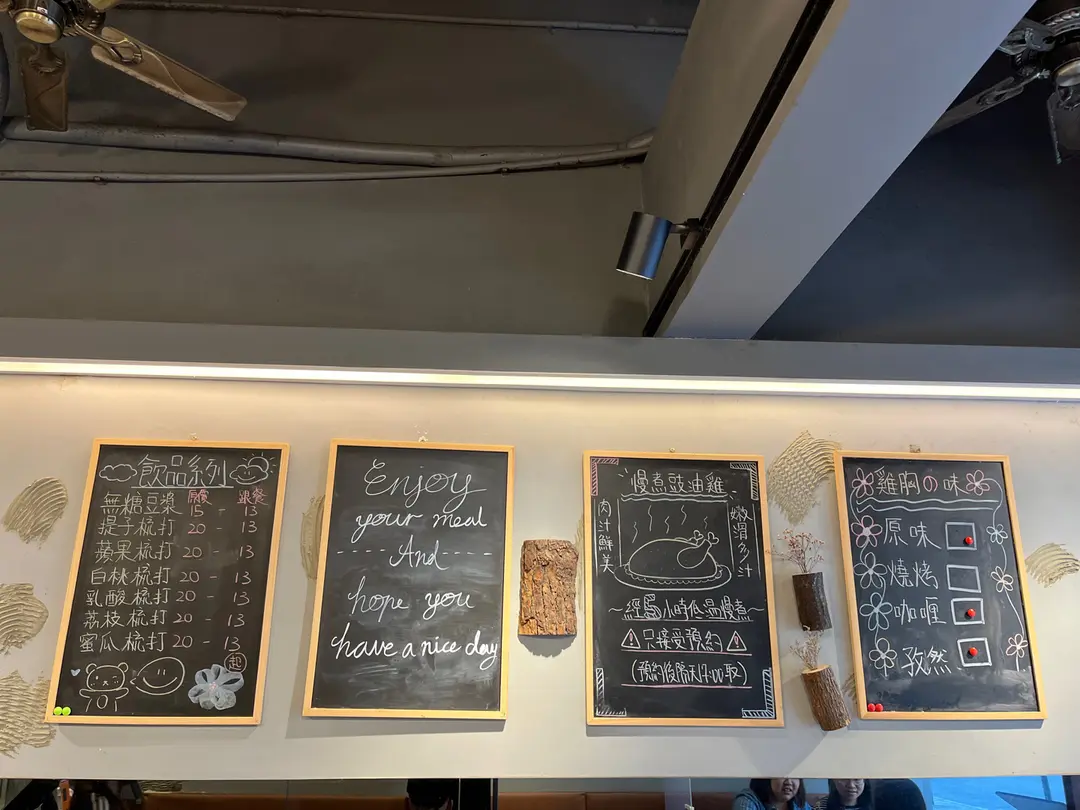 飲品系列
原價 跟餐
無糖豆漿 15 - 13
提子梳打 20 - 13
蘋果梳打 20 - 13
白桃梳打 20 - 13
乳酸梳打 20 - 13
荔枝梳打 20 - 13
蜜瓜梳打 20 - 13
起
Enjoy
your meal
And
hope you
have a nice day
慢煮豉油雞
肉汁鮮美
嫩滑多汁
小時低溫慢煮
只接受預約
(預約後隔天17:00取)
雞胸の味
原味
燒烤
咖喱
孜然